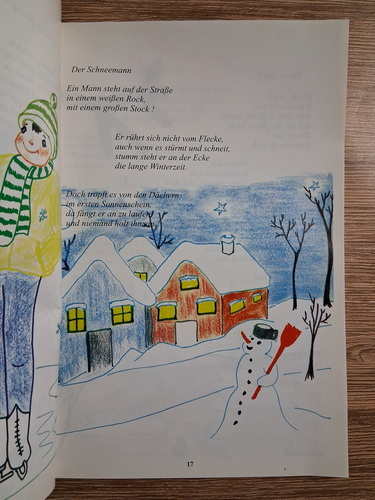 Der Schneemann
Ein Mann steht auf der Straße
in einem weißen Rock,
mit einem großen Stock !
Er rührt sich nicht vom Flecke,
auch wenn es stürmt und schneit,
stumm steht er an der Ecke
die lange Winterzeit.
Doch tropft es von den Dächern
im ersten Sonnenschein,
da fängt er an zu laufen
und niemand holt ihn ein.
17